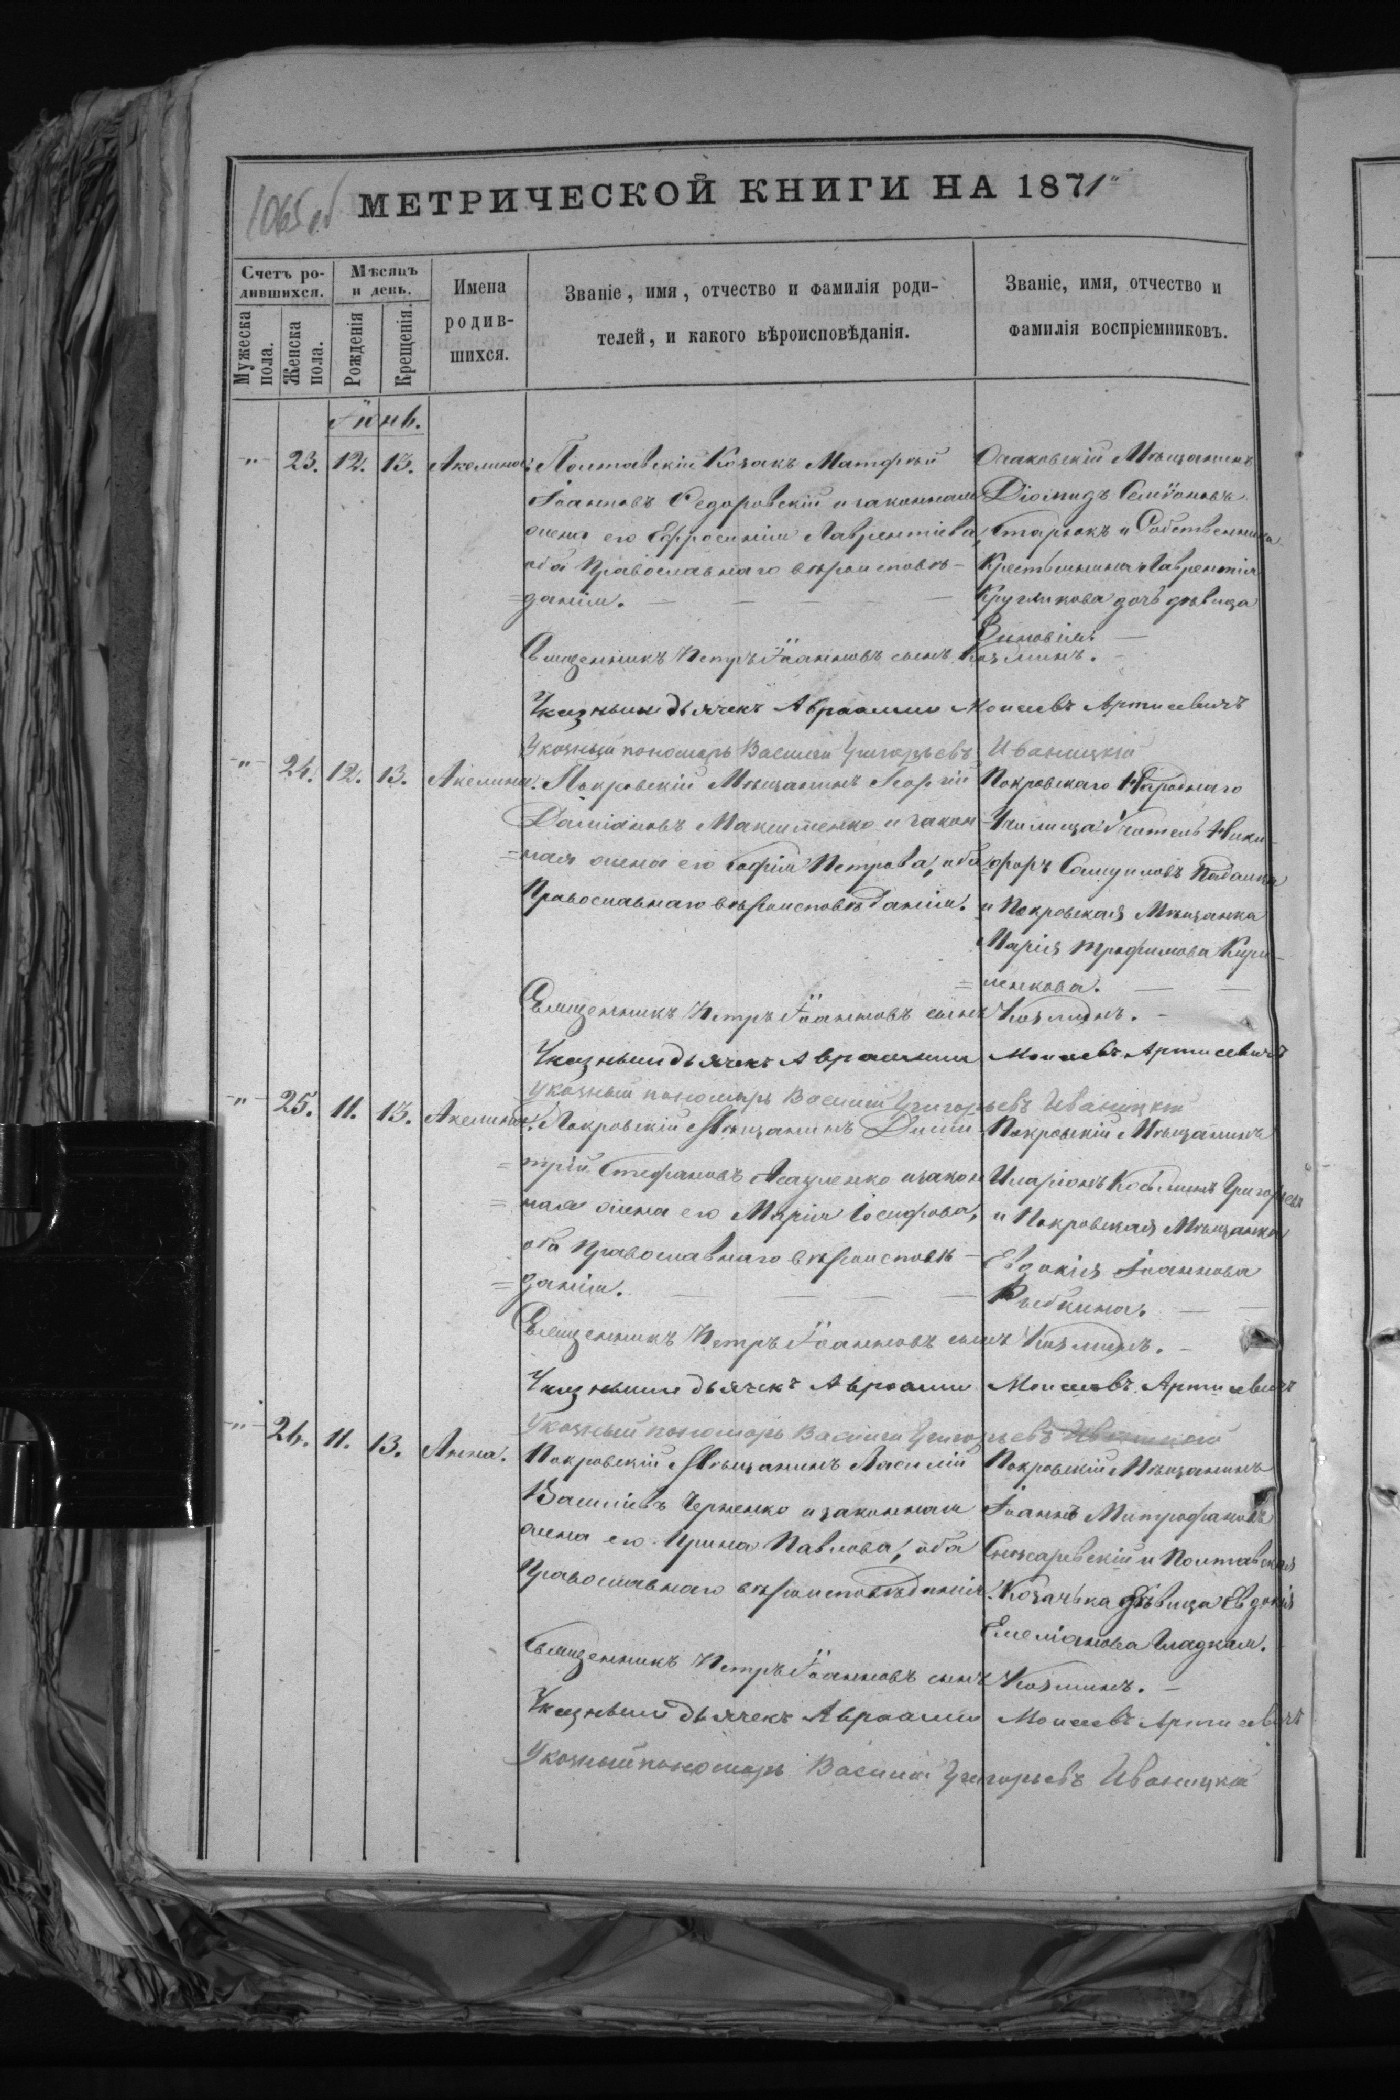 1065 об
МЕТРИЧЕСКОЙ КНИГИ НА 1871
Счетъ родившихся.
Мѣсяцъ и день.
Имена родившихся.
Званіе, имя, отчество и фамилія родителей, и какого вѣроисповѣданія.
Званіе, имя, отчество и фамилія воспріемниковъ.
Мужеска пола.
Женска пола.
Рожденія
Крещенія.
Іюнь.
" 23. 12. 13. Акелина. Полтавскій Козакъ Матфей
Іоанновъ Седоровскій и законная
жена его Ефросинія Лаврентіева,
оба Православнаго вѣроисповѣ-
=данія.
Очаковскій Мѣщанинъ
Діомидъ Семіоновъ
Старюкъ и Собственника
Крестьянина Лаврентія
Круглякова дочь дѣвица
Зиновія.
Священникъ Петръ Іоанновъ сынъ Козминъ.
Указный дьячекъ Авраамій Моисеевъ Артисевичъ
Указный пономарь Василій Григорьевъ Иваницкій
" 24. 12. 13. Акелина. Покровскій Мѣщанинъ Георгій
Даміановъ Максименко и закон-
=ная жена его Софія Петрова, оба
Православнаго вѣроисповѣданія.
Покровскаго Народнаго
Училища Учитель Ники-
форъ Самуиловъ
и Покровская Мѣщанка
Марія Трофимова Кири-
=ленкова.
Священникъ Петръ Іоанновъ сынъ Козминъ.
Указный дьячекъ Авраамій Моисеевъ Артисевичъ
Указный пономарь Василій Григорьевъ Иваницкій
" 25. 11. 13. Акелина. Покровскій Мѣщанинъ Дими-
=трій Стефановъ и закон-
=ная жена его Марія Іосифова,
оба Православнаго вѣроисповѣ-
=данія.
Покровскій Мѣщанинъ
Иларіонъ Григорьевъ
и Покровская Мѣщанка
Евдокія Іоаннова
Рыбкина.
Священникъ Петръ Іоанновъ сынъ Козминъ.
Указный дьячекъ Авраамій Моисеевъ Артисевичъ
Указный пономарь Василій Григорьевъ Иваницкій
" 26. 11. 13. Анна. Покровскій Мѣщанинъ Василій
Василіевъ Черненко и законная
жена его Ирина Павлова, оба
Православнаго вѣроисповѣданія.
Покровскій Мѣщанинъ
Іоаннъ Митрофановъ
Снисаревскій и Полтавская
Козачька дѣвица Евдокія
Емеліанова Гладкая.
Священникъ Петръ Іоанновъ сынъ Козминъ.
Указный дьячекъ Авраамій Моисеевъ Артисевичъ
Указный пономарь Василій Григорьевъ Иваницкій